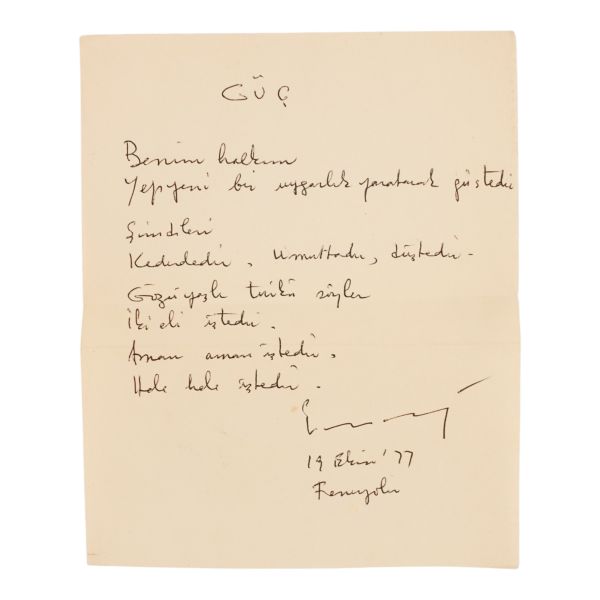 GÜÇ
Benim halkım
Yepyeni bir uygarlık yaratacak güçtedir
Şimdileri
Kederdedir, umuttadır, düştedir.
Gözüyaşlı türkü söyler
İki eli iştedir.
Aman aman iştedir,
Hele hele iştedir.
19 Ekim '77
Feneryolu